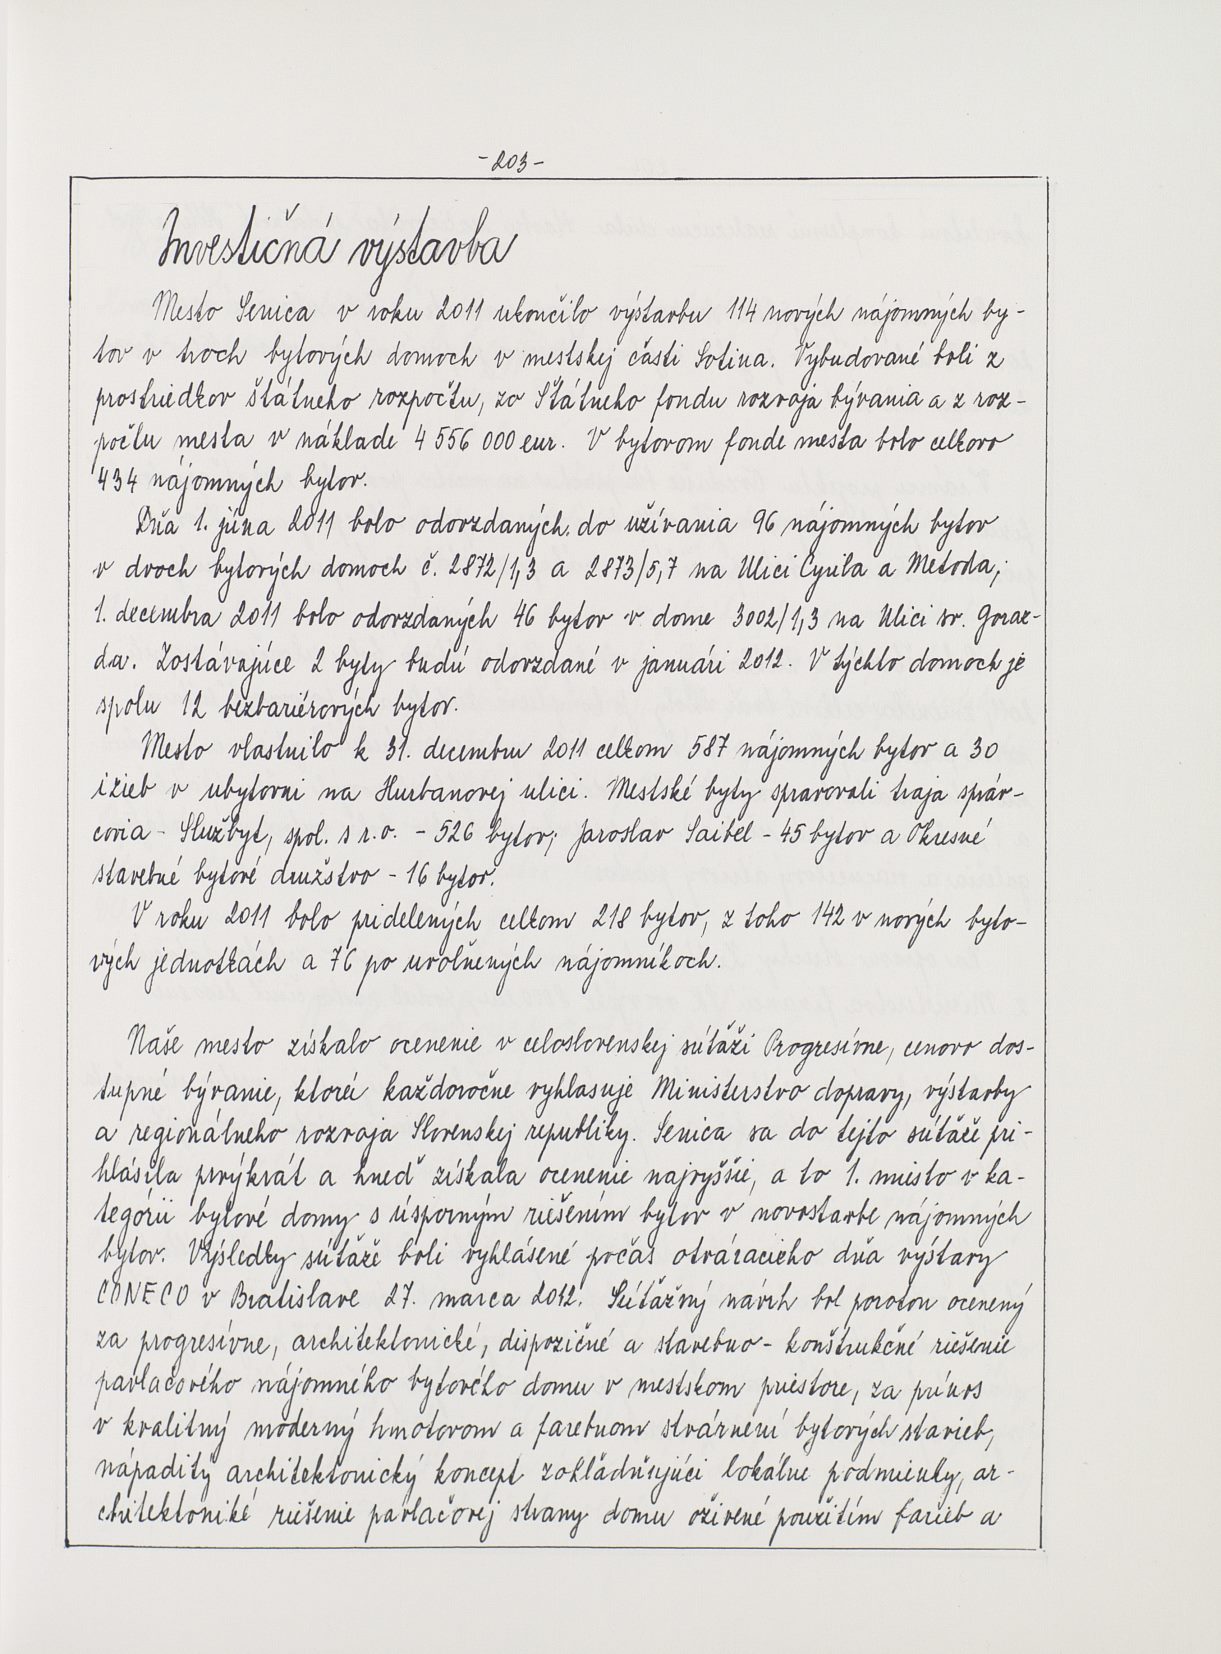 - 203 -
Investičná výstavba
Mesto Senica v roku 2011 ukončilo výstavbu 114 nových nájomných by-
tov v troch bytových domoch v mestskej časti Sotina. Vybudované boli z
prostriedkov štátneho rozpočtu, zo Štátneho fondu rozvoja bývania a z roz-
počtu mesta v náklade 4 556 000 eur. V bytovom fonde mesta bolo celkovo
434 nájomných bytov.
Dňa 1. júna 2011 bolo odovzdaných do užívania 96 nájomných bytov
v dvoch bytových domoch č. 2872/1,3 a 2873/5,7 na Ulici Cyrila a Metoda,
1. decembra 2011 bolo odovzdaných 46 bytov v dome 3002/1,3 na Ulici sv. Goraz-
da. Zostávajúce 2 byty budú odovzdané v januári 2012. V týchto domoch je
spolu 12 bezbariérových bytov.
Mesto vlastnilo k 31. decembru 2011 celkom 587 nájomných bytov a 30
izieb v ubytovni na Hurbanovej ulici. Mestské byty spravovali traja správ-
covia - Službyt, spol. s r.o. - 526 bytov; Jaroslav Saibel - 45 bytov a Okresné
stavebné bytové družstvo - 16 bytov.
V roku 2011 bolo pridelených celkom 218 bytov, z toho 142 v nových byto-
vých jednotkách a 76 po uvoľnených nájomníkoch.
Naše mesto získalo ocenenie v celoslovenskej súťaži Progresívne, cenovo dos-
tupné bývanie, ktorú každoročne vyhlasuje Ministerstvo dopravy, výstavby
a regionálneho rozvoja Slovenskej republiky. Senica sa do tejto súťaže pri-
hlásila prvýkrát a hneď získala ocenenie najvyššie, a to 1. miesto v ka-
tegórii bytové domy s úsporným riešením bytov v novostavbe nájomných
bytov. Výsledky súťaže boli vyhlásené počas otváracieho dňa výstavy
CONECO v Bratislave 27. marca 2012. Súťažný návrh bol porotou ocenený
za progresívne, architektonické, dispozičné a stavebno - konštrukčné riešenie
pavlačového nájomného bytového domu v mestskom priestore, za prínos
v kvalitný moderný hmotovom a farebnom stvárnení bytových stavieb,
nápaditý architektonický koncept zohľadňujúci lokálne podmienky, ar-
chitektoniké riešenie pavlačovej strany domu oživené použitím farieb a